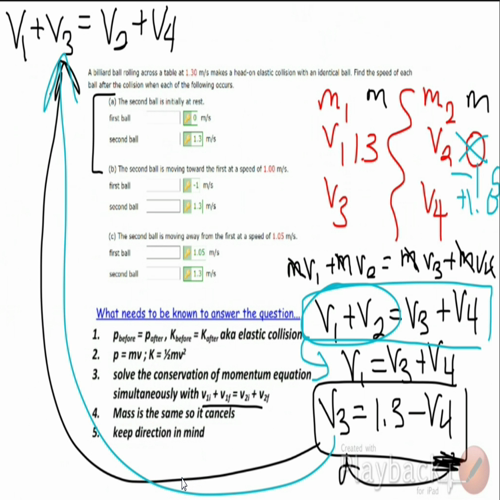 V₁+V₃=V₂+V₄
A billiard ball rolling across a table at 1.30 m/s makes a head-on elastic collision with an identical ball. Find the speed of each
ball after the collision when each of the following occurs.
(a) The second ball is initially at rest.
first ball 0 m/s
second ball 1.3 m/s
(b) The second ball is moving toward the first at a speed of 1.00 m/s.
first ball -1 m/s
second ball 1.3 m/s
(c) The second ball is moving away from the first at a speed of 1.05 m/s.
first ball 1.05 m/s
second ball 1.3 m/s
m₁ m m₂ m
V₁ 1.3 V₂ 0
V₃ V₄
mV₁+mV₂=mV₃+mV₄
V₁+V₂=V₃+V₄
V₁=V₃+V₄
V₃=1.3-V₄
What needs to be known to answer the question...
1. pbefore = pafter, Kbefore = Kafter aka elastic collision
2. p = mv ; K = ½mv²
3. solve the conservation of momentum equation
simultaneously with v₁ᵢ + v₁f = v₂ᵢ + v₂f
4. Mass is the same so it cancels
5. keep direction in mind
Created with
for iPad